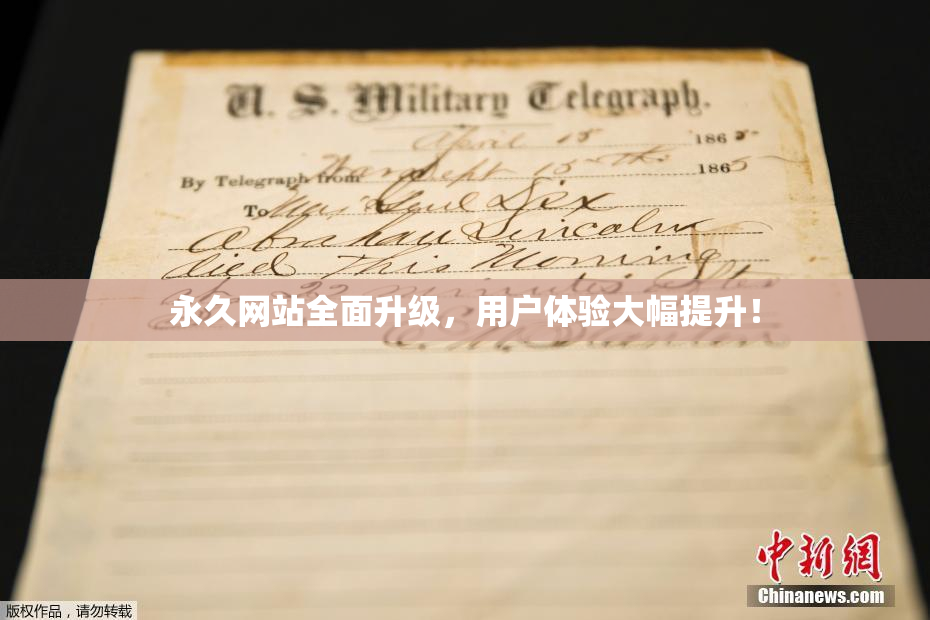 U. S. Military Telegraph.
April 15 1865
By Telegraph from War Dept 15 1865
To Maj Genl Dix
Abraham Lincoln
died This Morning
at 22 minutes after
永久网站全面升级，用户体验大幅提升！
E. M. Stanton
中新网
Chinanews.com
版权作品，请勿转载